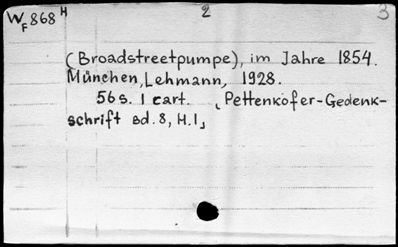 W_F 868 H 2 3
(Broadstreetpumpe), im Jahre 1854.
München, Lehmann, 1928.
56 s. 1 cart. [Pettenkofer-Gedenk-
schrift Bd. 8, H. 1]